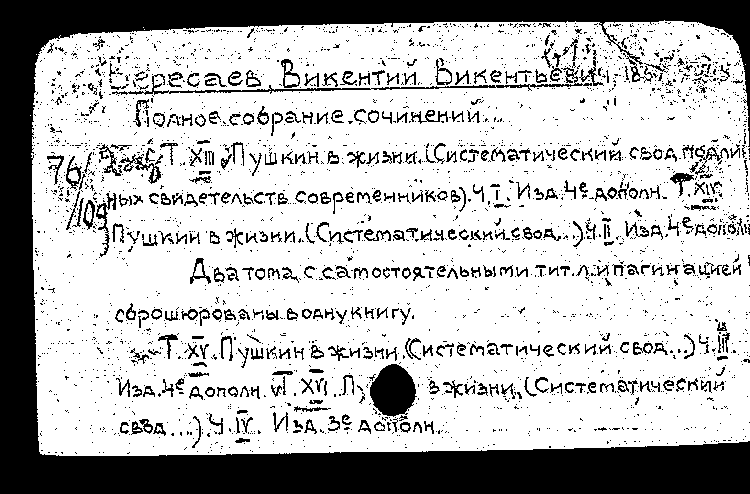 Вересаев, Викентий Викентьевич, 1867
Полное собрание сочинений...
76/109 Т. XIII. Пушкин в жизни. (Систематический свод подлин
ных свидетельств современников). Ч. I. Изд. 4е дополн. Т. XIV.
Пушкин в жизни. (Систематический свод...) Ч. II. Изд. 4е дополн
Два тома, с самостоятельными тит. л. и пагинацией
сброшюрованы в одну книгу.
Т. XV. Пушкин в жизни. (Систематический свод...) Ч. III.
Изд. 4е дополн. Т. XVI. в жизни. (Систематический
свод...). Ч. IV. Изд. 3е дополн.